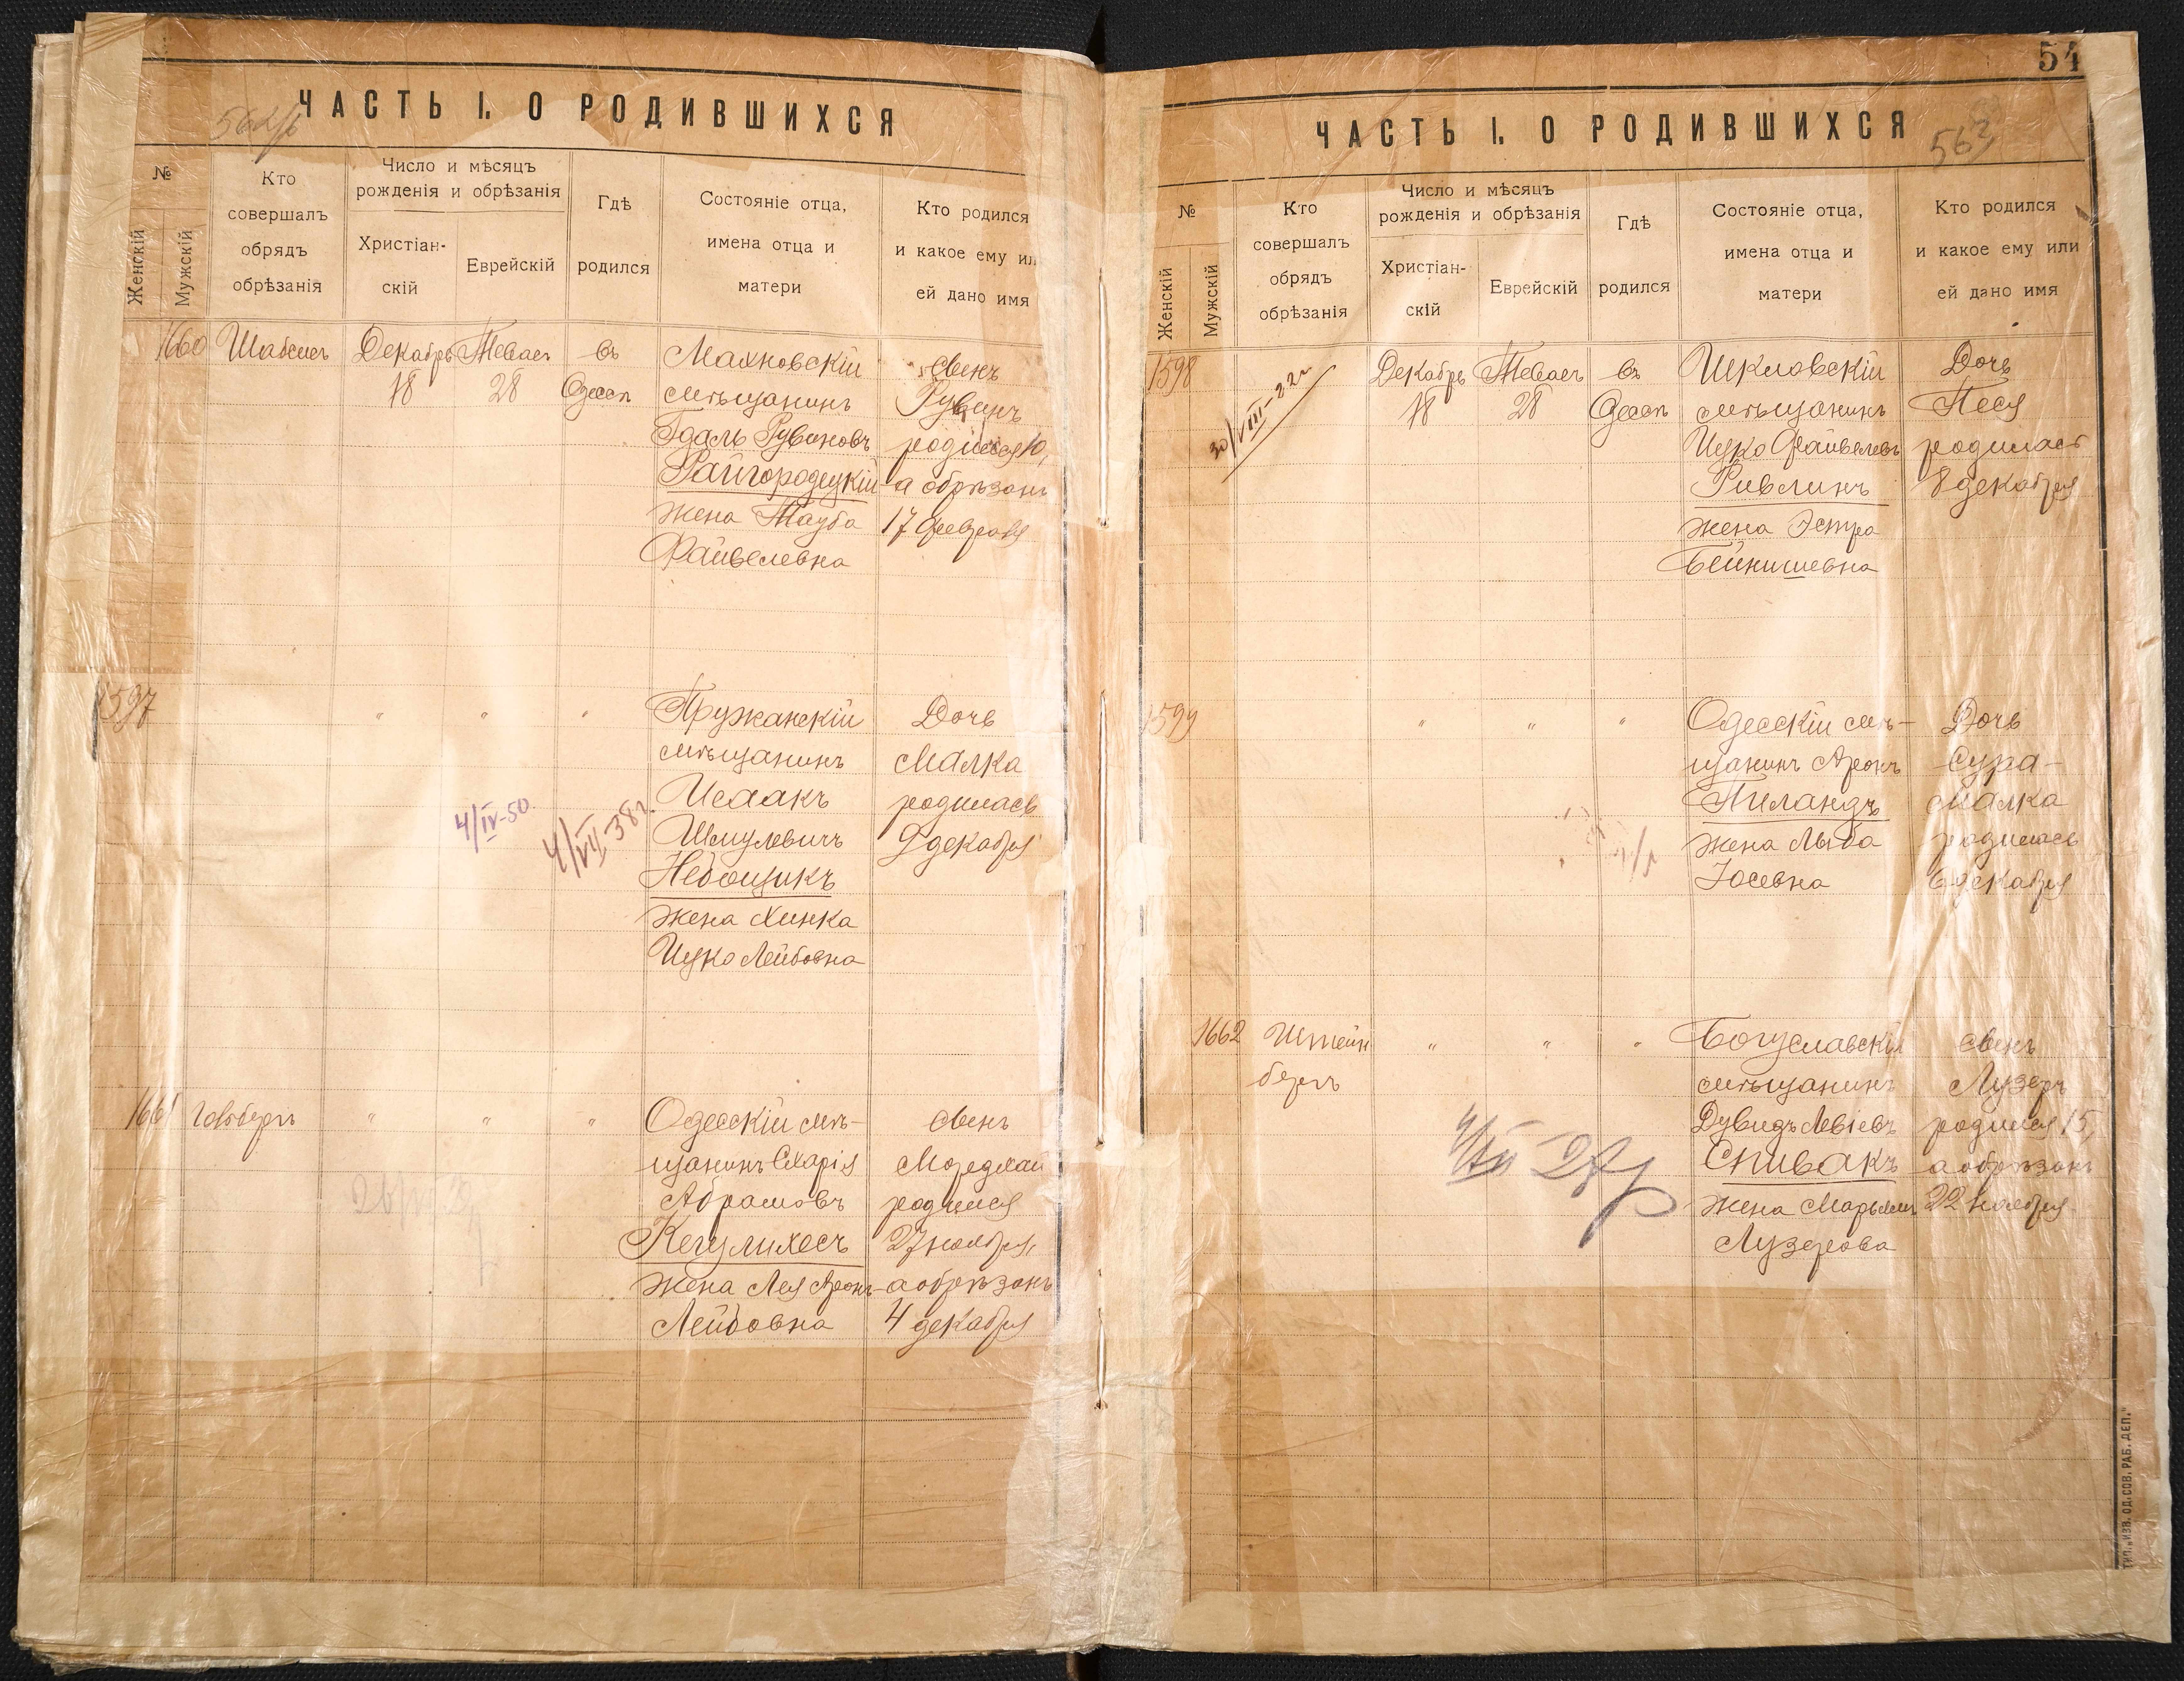 ЧАСТЬ I. О РОДИВШИХСЯ
№
Женскій
Мужскій
Кто
совершалъ
обрядъ
обрѣзанія
Число и мѣсяцъ
рожденія и обрѣзанія
Христіан-
скій
Еврейскій
Гдѣ
родился
Состояніе отца,
имена отца и
матери
Кто родился
и какое ему ил
ей дано имя
1660
Декабрь
18
28
въ
Махновскій
мѣщанинъ
Гдаль Рувиновъ
Райгородецкій
жена Тауба
Файвелевна
сынъ
Рувинъ
родился 10,
а обрѣзанъ
17 февраля
1597
"
"
"
Пружанскій
мѣщанинъ
Исаакъ
Шмулевичъ
Небощикъ
жена Хинка
Ицко Лейбовна
Дочь
Малка
родилась
9 декабря
4/IV-50.
4/VII-38г.
1661
"
"
"
Одесскій мѣ-
щанинъ
Абрамовъ
Кегулихесъ
жена Лея Аронъ-
Лейбовна
сынъ
Мордхай
родился
27 ноября,
а обрѣзанъ
4 декабря
54
ЧАСТЬ I. О РОДИВШИХСЯ
№
Женскій
Мужскій
Кто
совершалъ
обрядъ
обрѣзанія
Число и мѣсяцъ
рожденія и обрѣзанія
Христіан-
скій
Еврейскій
Гдѣ
родился
Состояніе отца,
имена отца и
матери
Кто родился
и какое ему или
ей дано имя
1598
30/VIII-22г
Декабрь
18
28
въ
Шкловскій
мѣщанинъ
Ицко Файвелевъ
Ривлинъ
жена Эстра
Бейнишевна
Дочь
Песя
родилась
8 декабря
1599
"
"
"
Одесскій мѣ-
щанинъ Аронъ
Пиландъ
жена Лыба
Іосевна
Дочь
Сура-
Малка
родилась
6 декабря
1662
Штейн
бергъ
"
"
"
Богуславскій
мѣщанинъ
Дувидъ Левіевъ
Спивакъ
жена Марьямъ
Лузерова
сынъ
Лузеръ
родился 15,
а обрѣзанъ
22 ноября
ТИП. „ИЗВ. ОД. СОВ. РАБ. ДЕП."